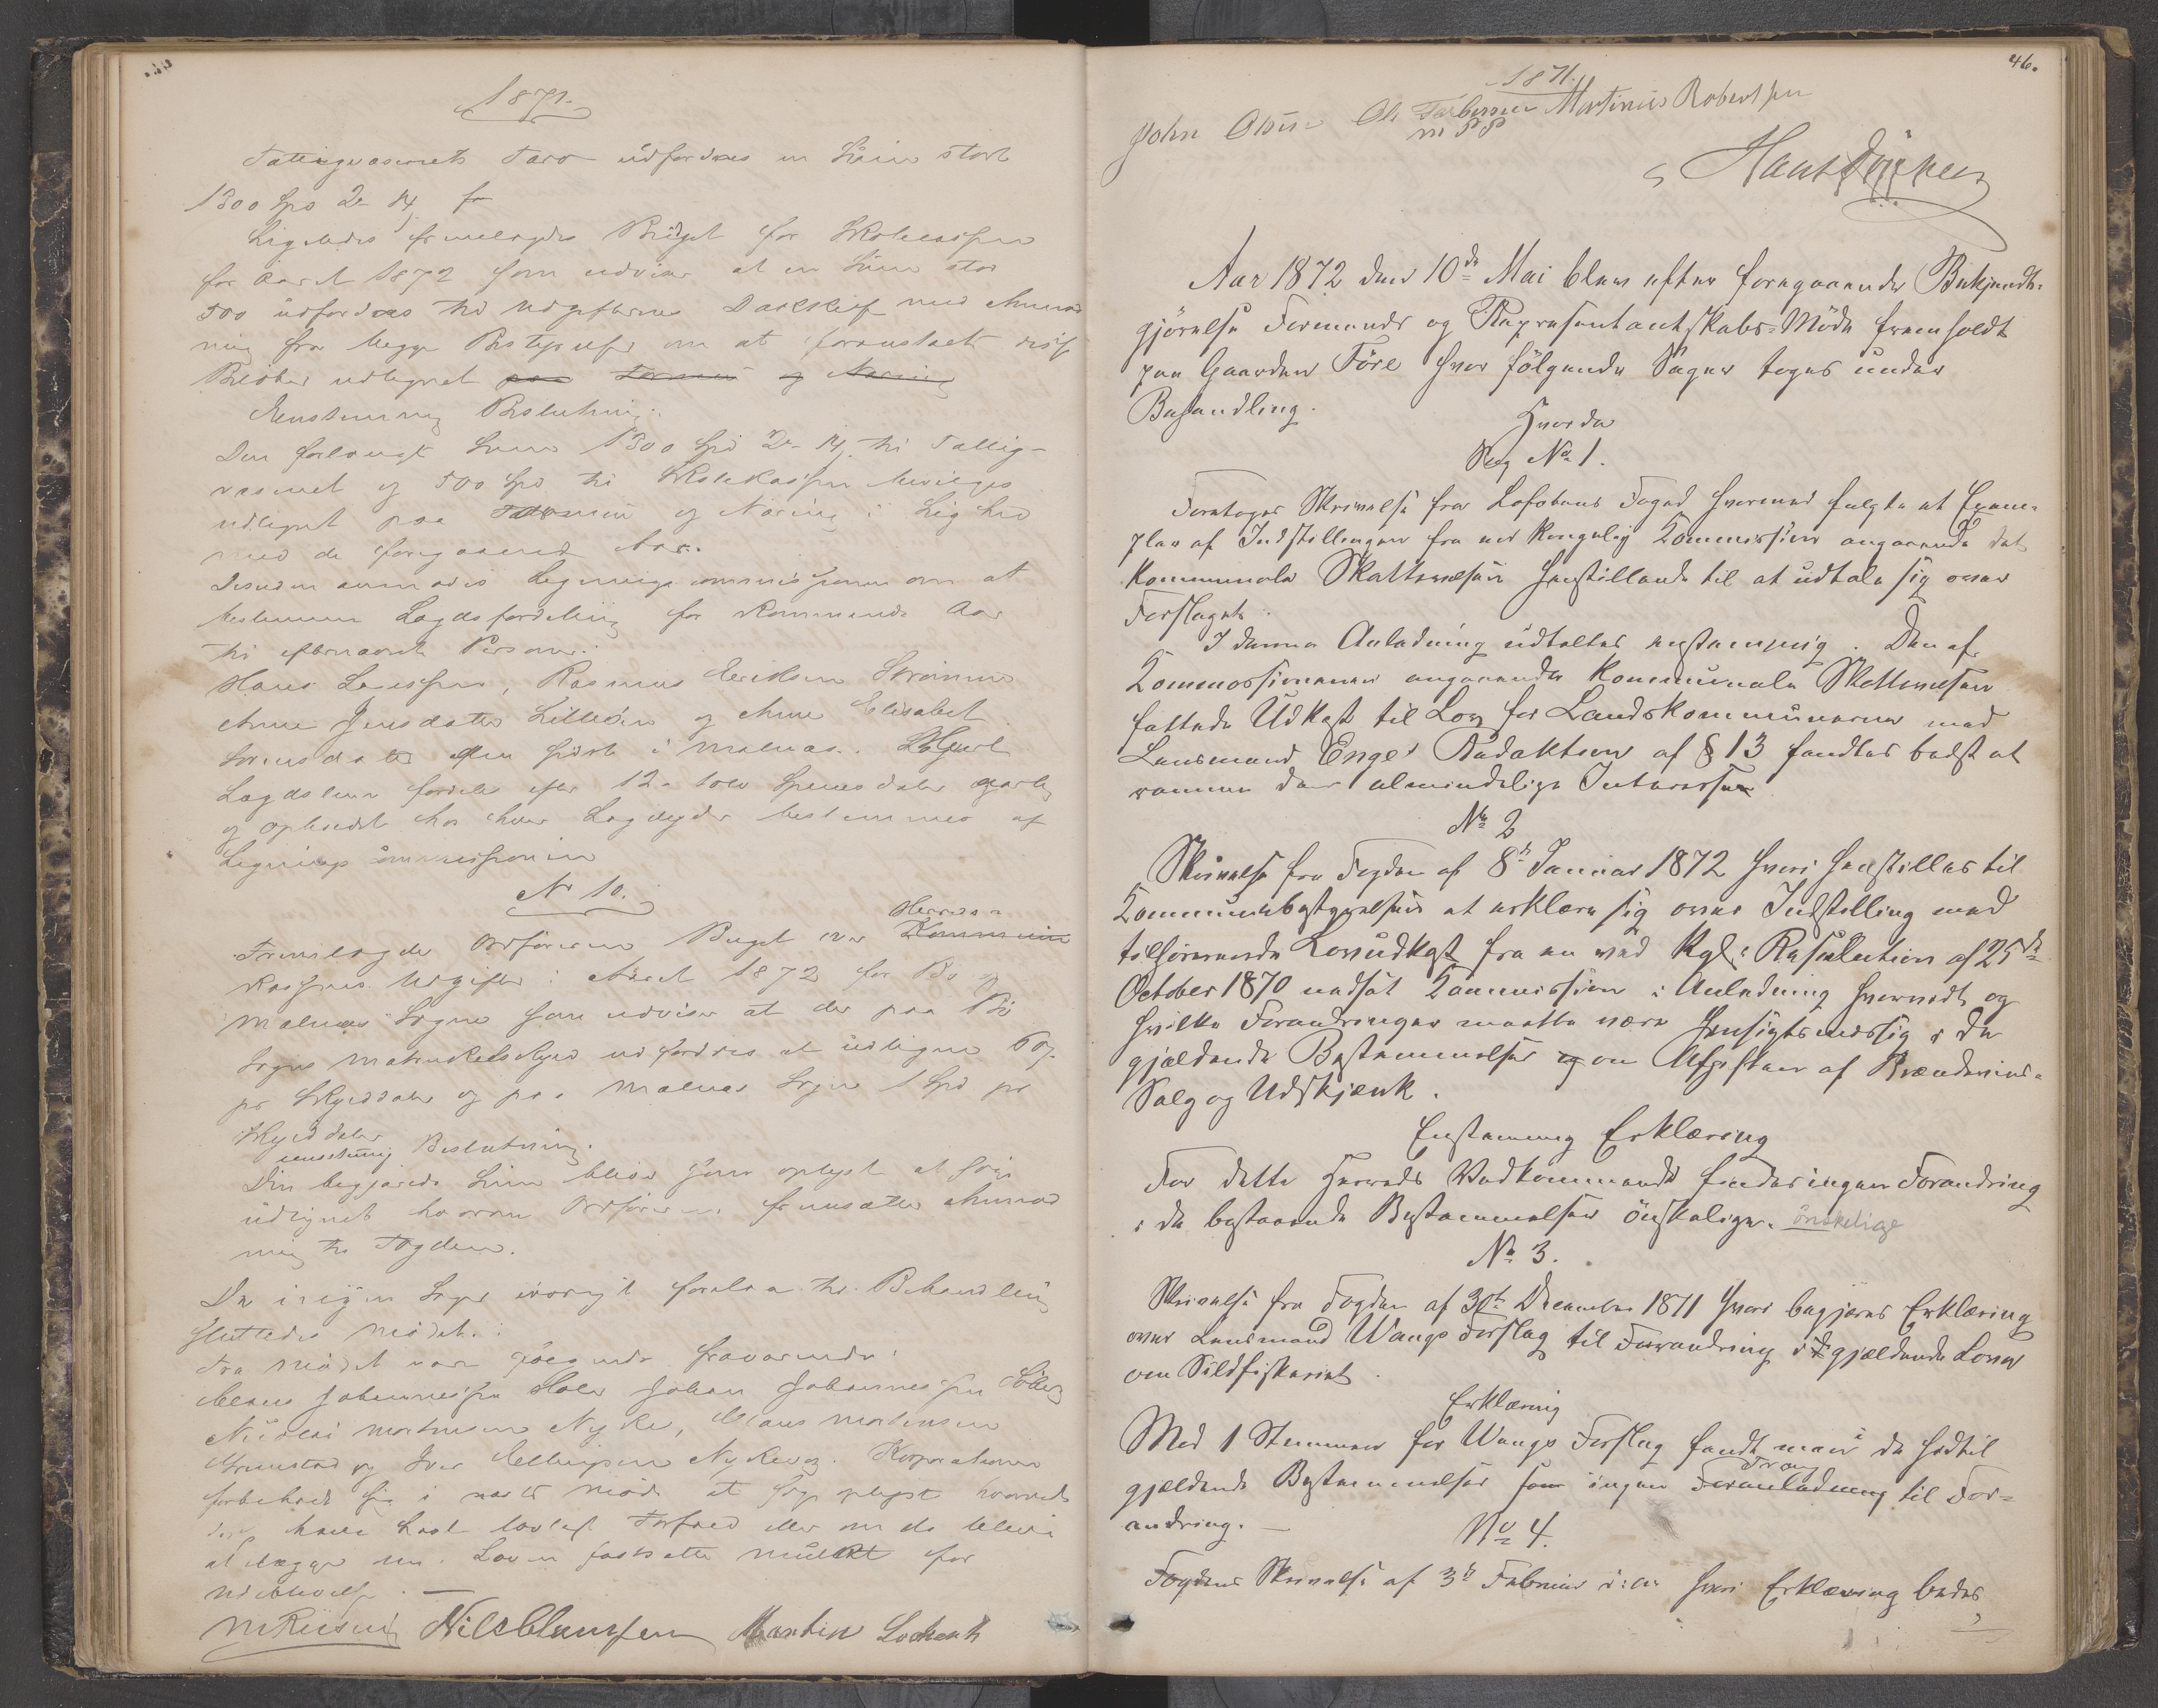 1871.
Fattigvæsenets Tarv udfordres en Süm stort
1300 Spd 2 fr
Ligeledes fremlagdes Büdget for Skolekassen
for Aaret 1872 som udviser at en Süm stor
500 üdfordres til Udgifternes Dækkelse med Anmod
ning fra begge Bestyrelser om at foranstaalte disse
Beløber udlignet paa Formue og Næring
Eenstemmig Beslutning:
Den forlangte Süm 1300 Spd 2 til Fattig-
væsenet og 500 Spd til Skolekassen bevilges
udlignet paa Formue og Næring i Lighed
med de foregaaende Aar.
Desuden anmodes Ligningscommissionen om at
bestemme Lægdsfordeling for kommende Aar
til efternævnte Personer:
Hans Larssen, Rasmus Eriksen Strømme
Anne Jensdatter Lilleøen og Anne Elisabet
Sørensdatter i Malnæs.
Lægdslem fordeles efter 12 tolv Speciedaler
og Opholdet hos hver Lægdyder bestemmes af
Lignings commissionen
No 10.
Herreds=
Fremlagdes Ordførerens Büget over Kommune
kassens Udgifter i Aaret 1872 for Bø og
Malnæs Sogne som udviser at der paa Bø
Sogns Matrikelskyld udfordres at üdligne 60
pr Skylddaler og paa Malnæs Sogn 1 Spd pr
Skylddaler
eenstemmig Beslutning.
Den begjærede Süm bliver som oplyst at
üdlignet hvorom Ordføreren fremsætter Anmod
ning til Fogden.
Da ingen Sager øvrigt forelaa til Behandling
sluttedes Mødet.
Fra Mødet var følgende fraværende:
Claus Johannessen Johan Johannessen
Nicolai Mortensen Nykke, Claus Mortensen
Grimstad og Iver Ellingsen Nykvog. Korporationen
forbeholdt sig i næste Møde at oplyst hvorvidt
have havt lovligt Forfald eller om de blive
at ilægge den i Loven fastsatte Mülkt for
Udeblivelse.
Nils Claussen Martin Lockert
46.
1871.
John Olsen Ole Torbersen Martinius Robertsen
m P P
Aar 1872 den 10de Mai blev efter foregaaende Bekjendt-
gjørelse Formands og Repræsentantskabs-Møde fremholdt
paa Gaarden Føre hvor følgende Sager toges under
Behandling.
Hvorda
Sag No 1.
Foretoges Skrivelse fra Lofotens Foged hvormed fulgte et Exem-
plar af Indstillingen fra en Kongelig Kommission angaaende det
kommunale Skattevæsen henstillende til at üdtale sig over
Forslaget.
I denne Anledning üdtaltes enstemmig. Den af
Kommissionen angaaende kommünale Skattevæsen
fattede Udkast til Lov for Landskommünerne med
Lensmand Enge's Redaktion af § 13 fandtes bedst at
ramme det almindelige Interesse
No 2
Skrivelse fra Fogden af 8de Januar 1872 hvori henstilles til
Kommünebestyrelsen at erklære sig over Indstilling med
tilhørende Lovüdkast fra en ved Kgl: Resolution af 25de
October 1870 nedsat Kommission i Anledning hvorvidt og
hvilke Forandringer maatte være hensigtsmæssig i de
gjældende Bestemmelser og om Afgiften af Brændevins-
Salg og Udskjænk.
Enstemmig Erklæring
For dette Herreds Vedkommende findes ingen Forandring
i de bestaaende Bestemmelser önskelige. önskelige
No 3.
Skrivelse fra Fogden af 30te December 1871 hvori begjæres Erklæring
over Lensmand Wangs Forslag til Forandring i de gjældende Love
om Sildfiskeriet.
Erklæring
Med 1 Stemmer for Wangs Forslag fandt man i de hidtil
Trang
gjældende Bestemmelser som ingen Foranledning til For-
andring. —
No 4.
Fogdens Skrivelse af 3de Februar d: A: hvori Erklæring bedes